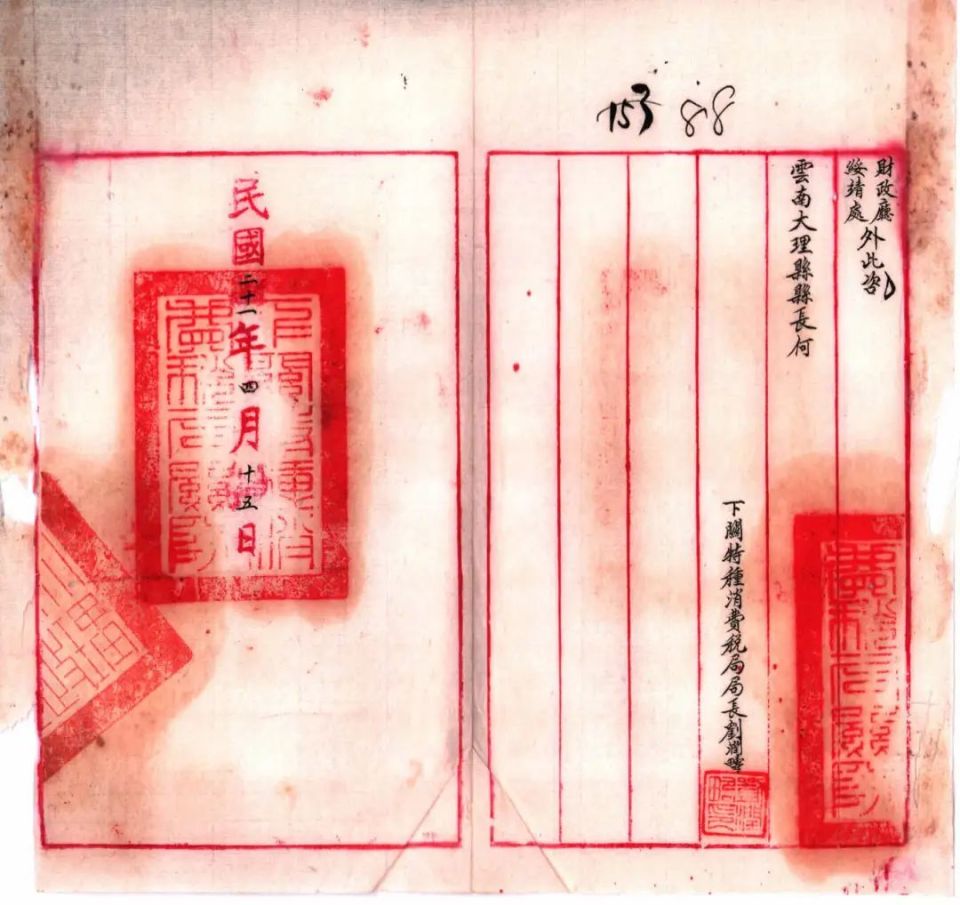 153 88
財政廳
綏靖處
外此咨
雲南大理縣縣長何
下關特種消費税局局長劉潤疇
民國二十一年四月十五日